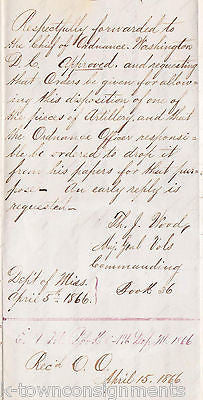 Respectfully forwarded to
the Chief of Ordnance, Washington
D.C. Approved, and requesting
that Orders is given for allow-
ing this disposition of one of
the pieces of Artillery, and that
the Ordnance Officer responsi-
ble be ordered to drop it
from his papers for that pur-
pose — An early reply is
requested —
Th. J. Wood,
Maj. Genl. Vols
Commanding
Dept of Miss.
April 5th 1866.
Book 36
1866
Rec'd O.O.
April 15. 1866
k-townconsignments